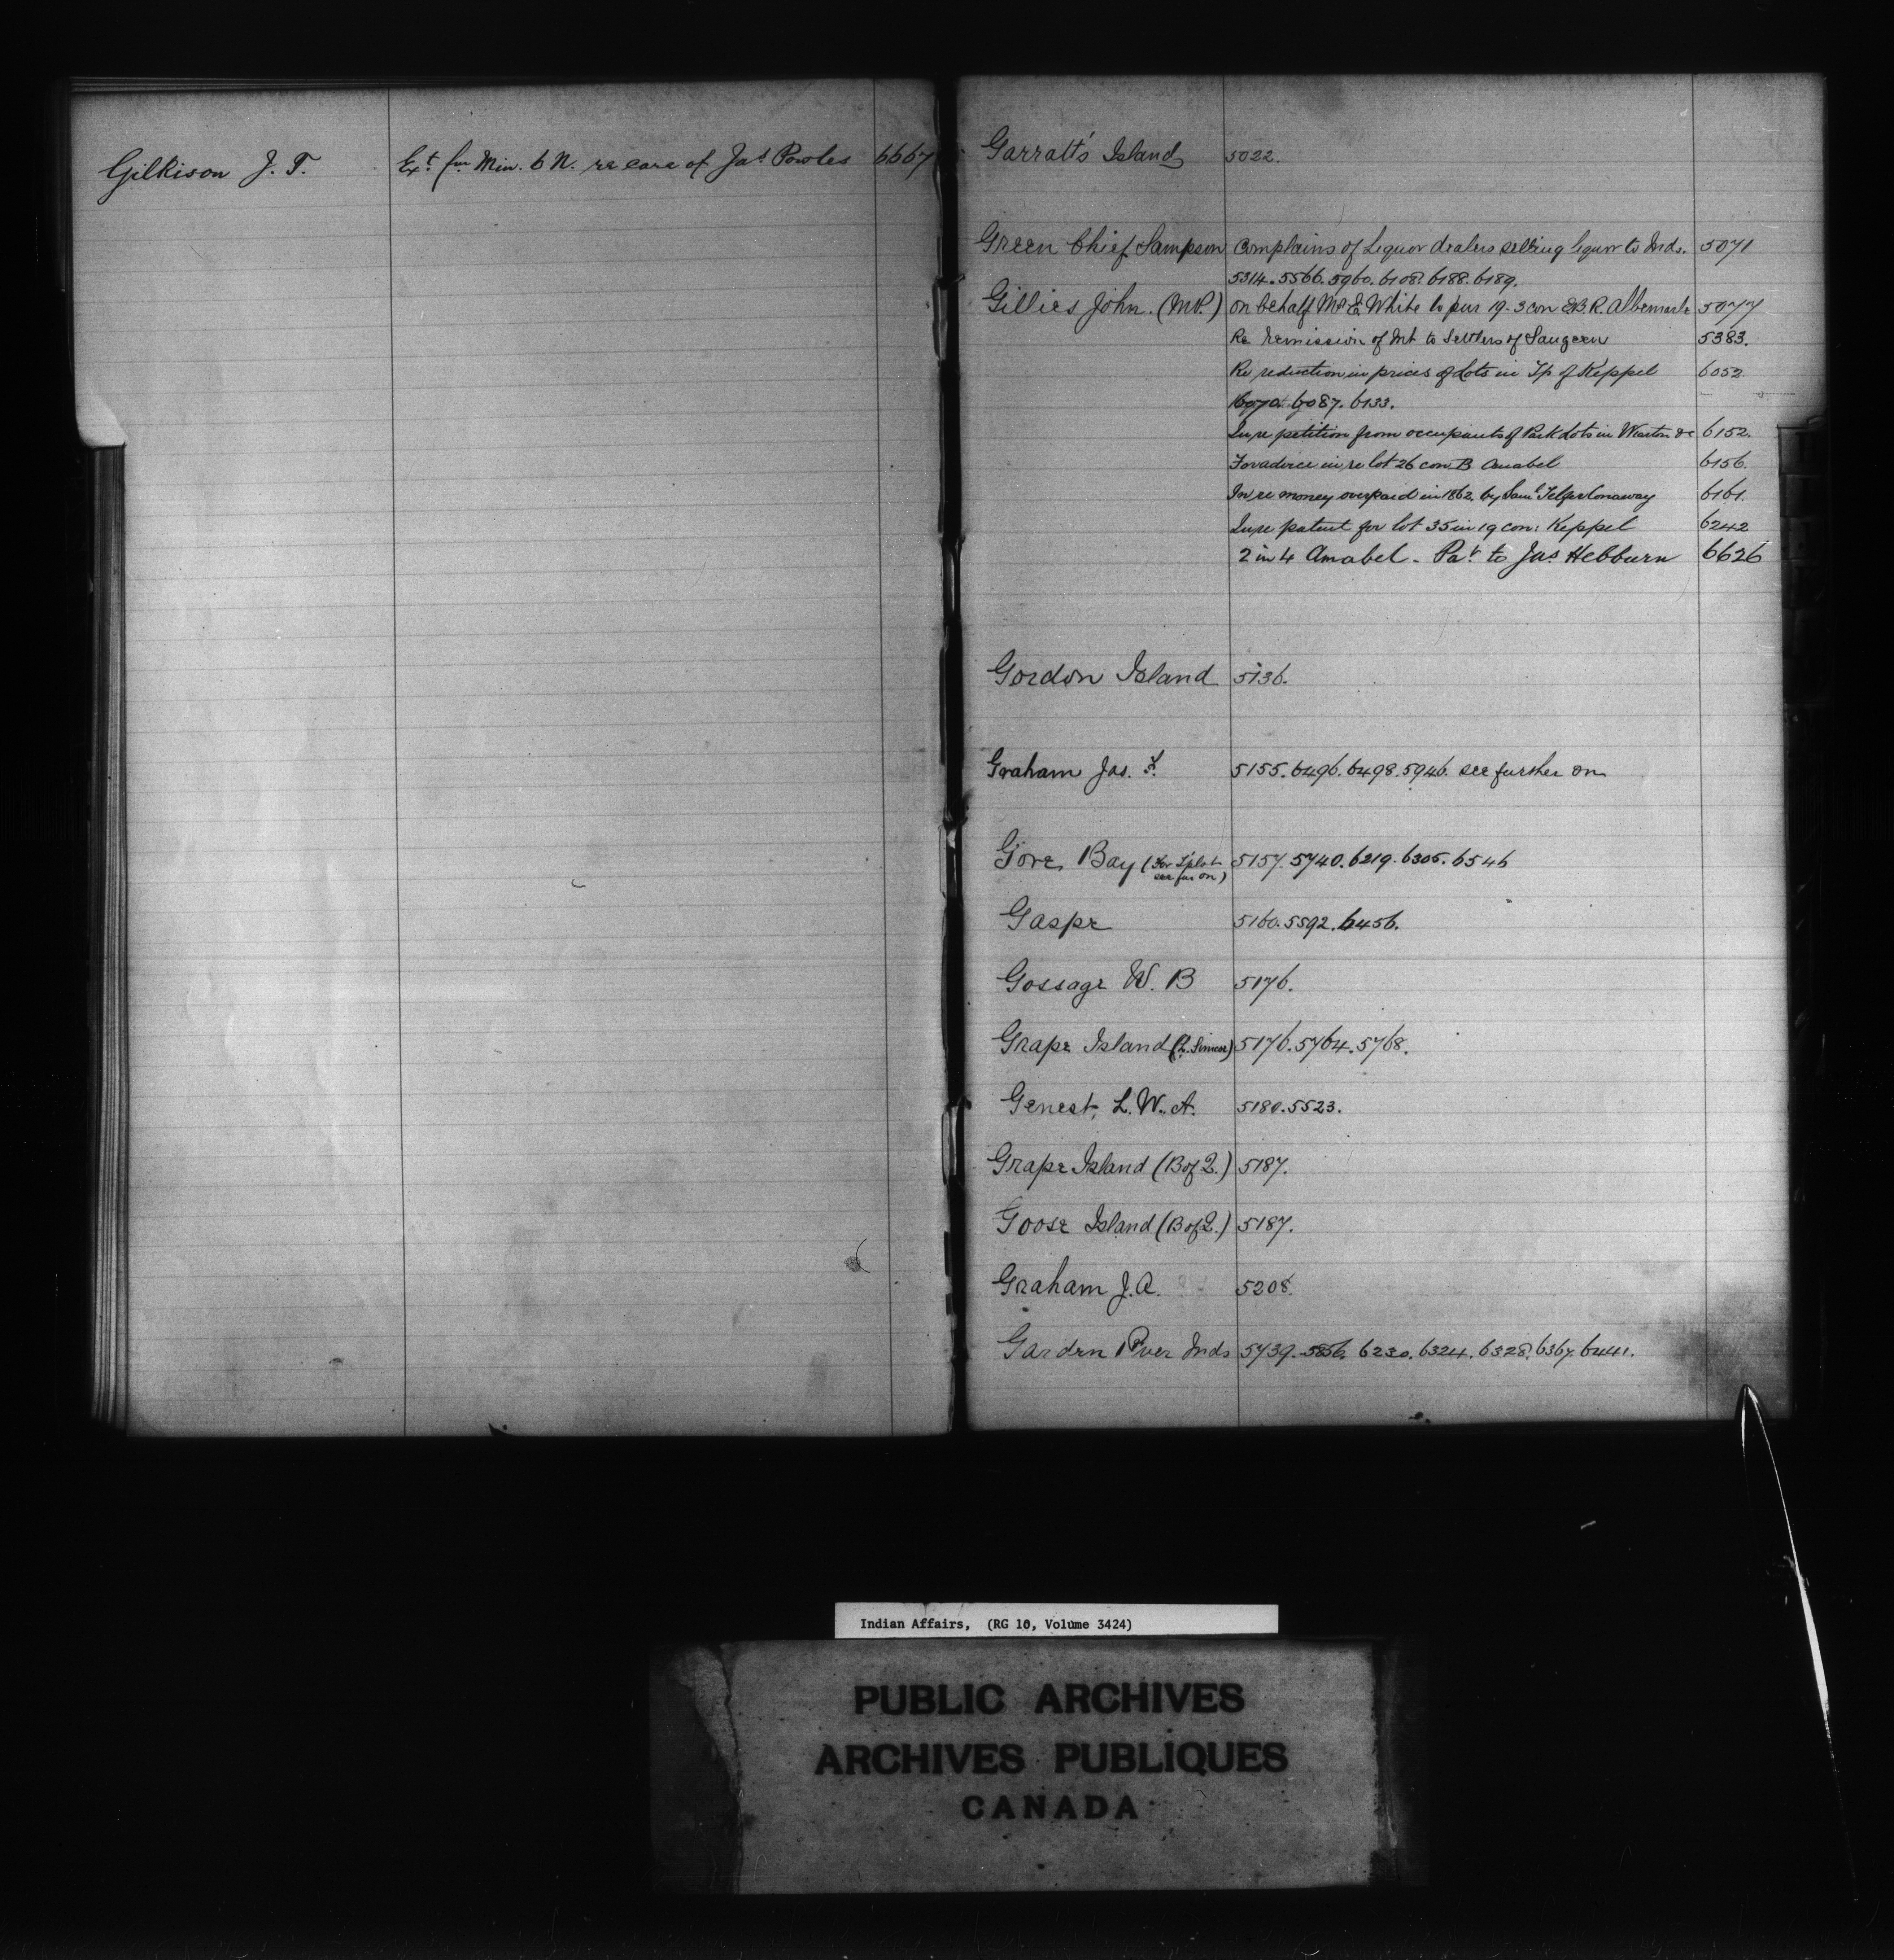 Gilkison J. T. Ext. fm Min. 6 N. re case of Jas Powles 6667
Garratt's Island 5022.
Green Chief Sampson Complains of Liquor dealers selling liquor to Inds. 5071
5314. 5566. 5960. 6108. 6188. 6189.
Gillies John. (M.P.) On behalf Mr E. White to pur 19-3 con E.B.R. Albemarle 5077
Re remission of Int to Settlers of Saugeen 5383.
Re reduction in prices of Lots in Tp of Keppel 6052.
6070. 6087. 6133.
In re petition from occupants of Park Lots in Wiarton &c 6152.
For advice in re lot 26 con B Amabel 6156.
In re money overpaid in 1862. by Saml Telfer Conaway 6161.
In re patent for lot 35 in 19 con: Keppel 6242
2 in 4 Amabel - Pat to Jas Hebburn 6626
Gordon Island 5136.
Graham Jas. F. 5155. 6496. 6498. 5946. see further on
Gore Bay (For T'plot 5157. 5740. 6219. 6305. 6546
see fur on)
Gaspe 5160. 5592. 6456.
Gossage W. B 5176.
Grape Island (L. Simcoe) 5176. 5764. 5768.
Genest, L. W. A. 5180. 5523.
Grape Island (B of Q.) 5187.
Goose Island (B of Q.) 5187.
Graham J. A. 5208.
Garden River Inds 5739. 5856. 6230. 6324. 6328. 6367. 6441.
Indian Affairs, (RG 10, Volume 3424)
PUBLIC ARCHIVES
ARCHIVES PUBLIQUES
CANADA